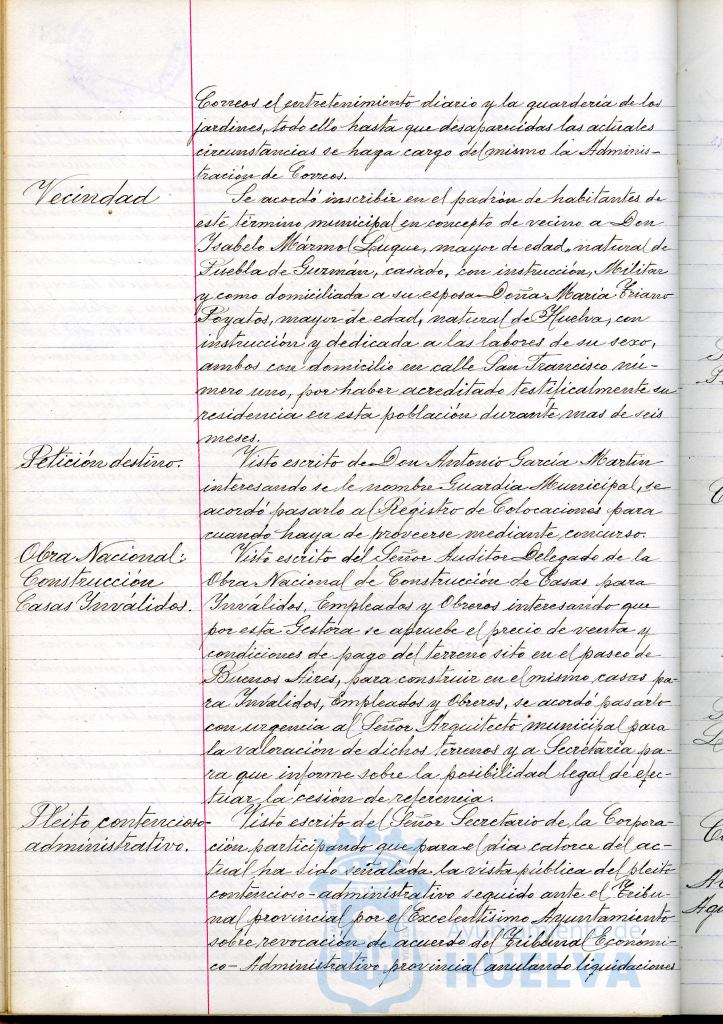 Correos el entretenimiento diario y la guardería de los
jardines, todo ello hasta que desaparecidas las actuales
circunstancias se haga cargo del mismo la Adminis-
tración de Correos.
Vecindad
Se acordó inscribir en el padrón de habitantes de
este término municipal en concepto de vecino a Don
Ysabelo Mármol Luque, mayor de edad, natural de
Puebla de Guzmán, casado, con instrucción, Militar
y como domiciliada a su esposa Doña María Triano
Poyatos, mayor de edad, natural de Huelva, con
instrucción y dedicada a las labores de su sexo,
ambos con domicilio en calle San Francisco nú-
mero uno, por haber acreditado testificalmente su
residencia en esta población durante mas de seis
meses.
Petición destino.
Visto escrito de Don Antonio García Martín
interesando se le nombre Guardia Municipal, se
acordó pasarlo al Registro de Colocaciones para
cuando haya de proveerse mediante concurso.
Obra Nacional:
Construccion
Casas Inválidos.
Visto escrito del Señor Auditor Delegado de la
Obra Nacional de Construcción de Casas para
Ynválidos, Empleados y Obreros interesando que
por esta Gestora se apruebe el precio de venta y
condiciones de pago del terreno sito en el paseo de
Buenos Aires, para construir en el mismo casas pa-
ra Ynválidos, Empleados y Obreros, se acordó pasarlo
con urgencia al Señor Arquitecto municipal para
la valoración de dichos terrenos y a Secretaría pa-
ra que informe sobre la posibilidad legal de efec-
tuar la cesión de referencia.
Pleito contencioso-
administrativo.
Visto escrito del Señor Secretario de la Corpora-
ción participando que para el dia catorce del ac-
tual ha sido señalada la vista pública del pleito
contencioso-administrativo seguido ante el Tribu-
nal provincial por el Excelentísimo Ayuntamiento
sobre revocación de acuerdo del Tribunal Económi-
co-Administrativo provincial anulando liquidaciones
Ayuntamiento de
HUELVA